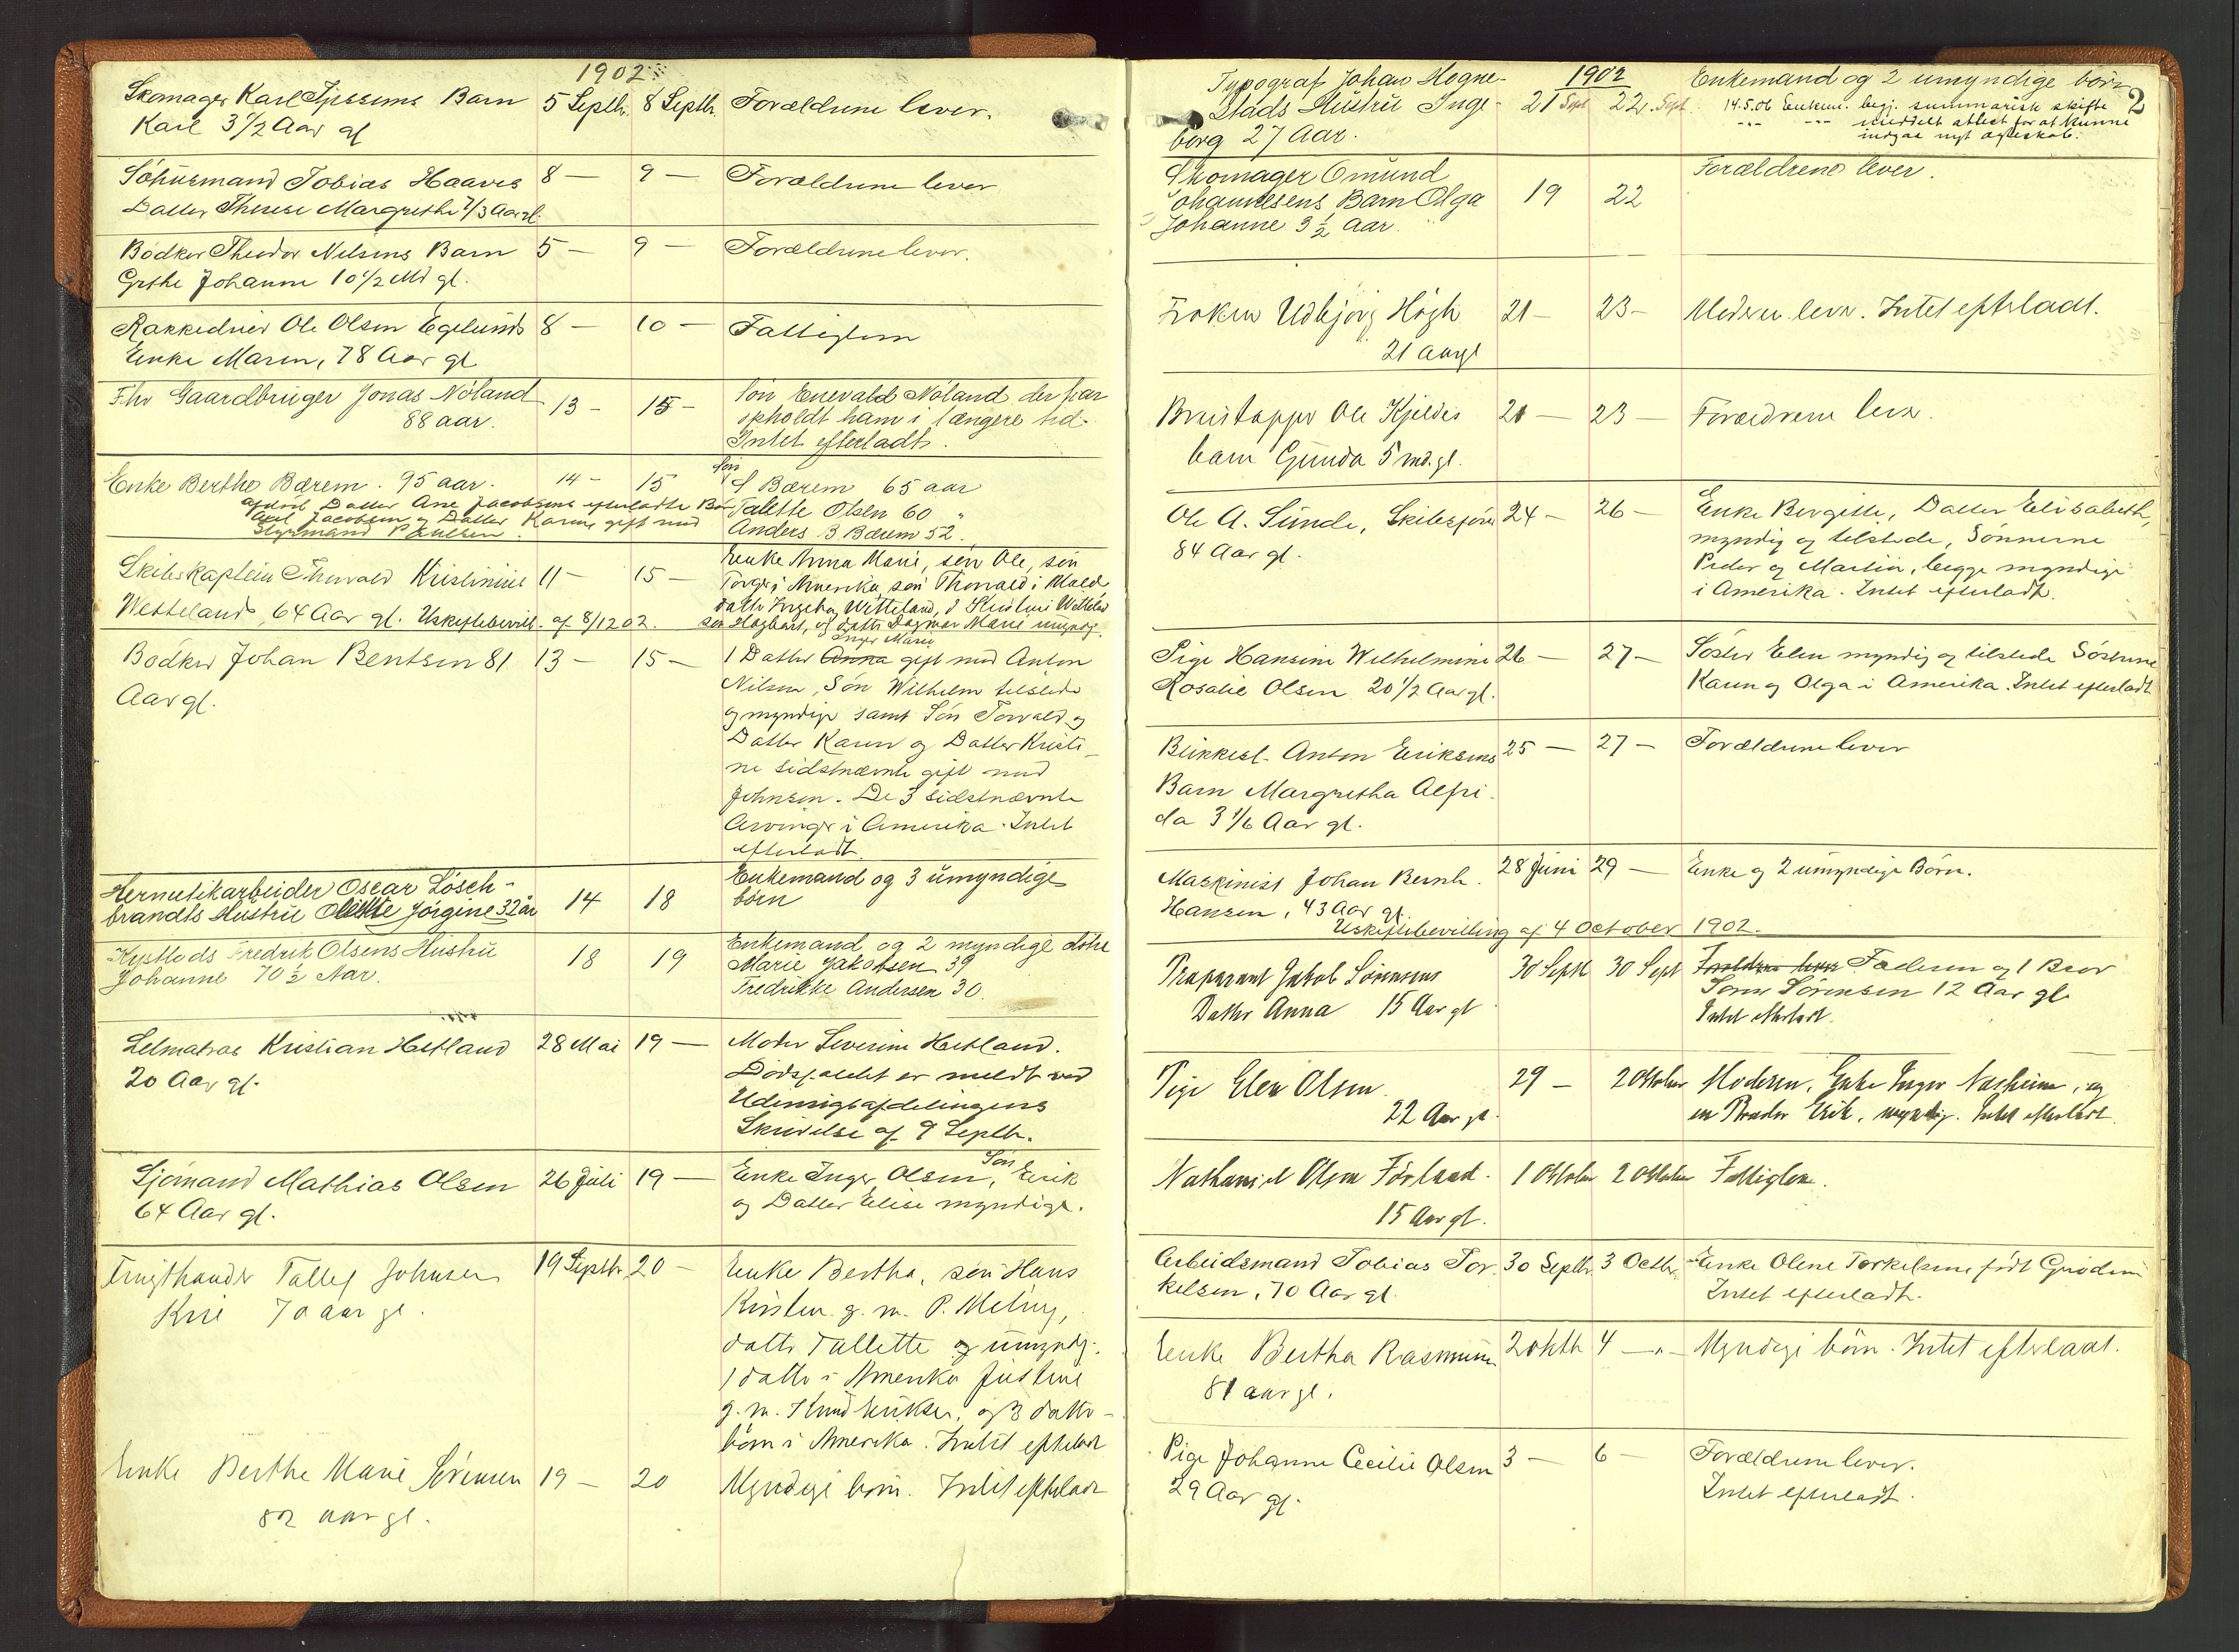 1902
Skomager Karl Barn 5 Septb. 8 Septb. Forældrene lever.
Karl 3 1/2 Aar gl
Tobias Haaves 8 — 9 — Forældrene lever
Datter Therese Margrethe Aar gl.
Bødker Theodor Nilsens Barn 5 — 9 — Forældrene lever.
Grethe Johanne 10 1/2 Md gl.
Ole Olsen Egelunds 8 — 10 — Fattiglem
Enke Maren, 78 Aar gl
Fhv Gaardbruger Jonas Nøland 13 - 15 - Søn Enevald Nøland der har
88 aar. opholdt ham i længere tid.
Intet efterladt.
Enke Berthe Bærem. 95 aar. 14 - 15 Søn
Bærem 65 aar
afdød Datter Ane Jacobsens efterladte Børn Talette Olsen 60 "
Axel Jacobsen og Datter Karine gift med Anders B Bærem 52.
Styrmand Paulsen.
Skibskaptein Thorvald Kristinius 11 — 15 — Enke Anna Marie, søn Ole, søn
i Amerika, søn Thorvald i
Westeland, 64 Aar gl. Uskiftebevill. af 8/12 02.
datter Dagmar Marie umyndig.
Inger Marie
Bødker Johan Bentsen 81 13 — 15 — 1 Datter Anna gift med Anton
Aar gl. Nilsen, Søn Wilhelm tilstede
og myndige samt Søn Torvald og
Datter Karen og Datter Kristi-
ne sidstnævnte gift med
Johnsen. De 3 sidstnævnte
Arvinger i Amerika. Intet
efterladt.
Hermetikarbeider Oscar Løsch- 14 18 Enkemand og 3 umyndige
brandts Hustru Jørgine 32 år børn
Kystlods Fredrik Olsens Hustru 18 19 Enkemand og 2 myndige døtre
Johanne 70 1/2 Aar. Marie Jakobsen 39
Fredrikke Andersen 30.
Letmatros Kristian Hetland 28 Mai 19 — Moder Severine Hetland.
20 Aar gl. Dødsfaldet er meldt ved
Udenrigsafdelingens
Skrivelse af 9 Septb.
Sjømand Mathias Olsen 26 Juli 19 — Enke Inger Olsen, Søn Erik
64 Aar gl. og Datter Elise myndige.
Tallef Johnsen 19 Septb. 20 — Enke Bertha, søn Hans
70 aar gl. Kirsten g. m. P.
datter Tallette og umyndig.
1 datter i Amerika Justine
g. m. og 3 datter-
børn i Amerika. Intet efterladt
Enke Berthe Marie Sørensen 19 — 20 Myndige børn. Intet efterladt
82 aar gl.
2
1902
Typograf Johan Hogne- 21 Sept 22. Sept. Enkemand og 2 umyndige børn
stads Hustru Inge- 14.5.06 Enkem. begj. summarisk skifte
borg 27 Aar. --- --- meddelt attest for at kunne
indgaa nyt ægteskab.
Skomager Omund 19 22 Forældrene lever.
Johannesens Barn Olga
Johanne 3 1/2 Aar.
Frøken Udbjørg Høgh 21 — 23 - Moderen lever. Intet efterladt.
21 Aar gl
Ole Kjeldes 21 — 23 — Forældrene lever.
barn Gunda 5 md. gl.
Ole A. Sunde, Skibsfører 24 — 26 — Enke Bergitte, Datter Elisabeth,
84 Aar gl. myndig og tilstede, Sønnerne
Peder og Martin, begge myndige
i Amerika. Intet efterladt.
Pige Hansine Wilhelmine 26 — 27 — Søster Elen myndig og tilstede Søstrene
Rosalie Olsen 20 1/2 Aar gl. Karen og Olga i Amerika. Intet efterladt
Blikksl. Anton Eriksens 25 — 27 — Forældrene lever
Barn Margretha Alfri-
da 3 1/6 Aar gl.
Maskinist Johan Bernh. 28 Juni 29 — Enke og 2 umyndige Børn.
Hansen, 43 Aar gl.
Uskiftebevilling af 4 October 1902.
Præparant Jakob Sørensens 30 Sept 30 Sept Forældrene lever Faderen og 1 Bror
Datter Anna 15 Aar gl Sørensen 12 Aar gl.
Intet efterladt.
Pige Elen Olsen 29 — 2 Oktober Moderen, Enke Inger Næsheim, og
22 Aar gl. en Broder Erik, myndig. Intet efterladt.
Nathaniel Olsen Førland. 1 Oktober 2 Oktober Fattiglem.
15 Aar gl.
Arbeidsmand Tobias Tor- 30 Septb. 3 Octb. Enke Olene Torkelsen født
kelsen, 70 Aar gl. Intet efterladt.
Enke Bertha Rasmussen 2 oktb 4 —"— Myndige børn. Intet efterladt.
81 aar gl.
Pige Johanne Cecilie Olsen 3 — 6 — Forældrene lever.
29 Aar gl. Intet efterladt.